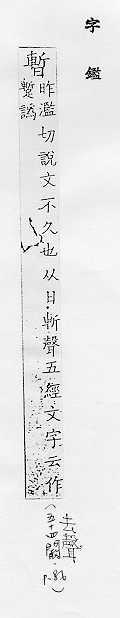 字鑑
暫昨濫切說文不久也从日斬聲五經文字云作
蹔譌
去聲
(五十四闞
p.86)